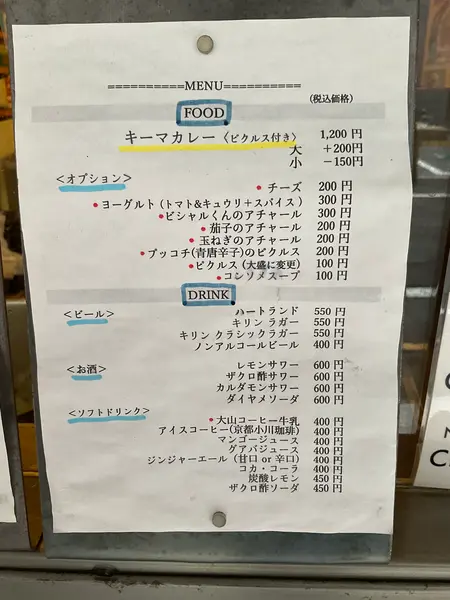 ==========MENU==========
(税込価格)
FOOD
キーマカレー〈ピクルス付き〉 1,200 円
大 +200円
小 −150円
<オプション>
• チーズ 200 円
• ヨーグルト (トマト&キュウリ+スパイス) 300 円
• ビシャルくんのアチャール 300 円
• 茄子のアチャール 200 円
• 玉ねぎのアチャール 200 円
• プッコチ(青唐辛子)のピクルス 200 円
• ピクルス (大盛に変更) 100 円
• コンソメスープ 100 円
DRINK
<ビール>
ハートランド 550 円
キリン ラガー 550 円
キリン クラシックラガー 550 円
ノンアルコールビール 400 円
<お酒>
レモンサワー 600 円
ザクロ酢サワー 600 円
カルダモンサワー 600 円
ダイヤメソーダ 600 円
<ソフトドリンク>
• 大山コーヒー牛乳 400 円
アイスコーヒー(京都小川珈琲) 400 円
マンゴージュース 400 円
グアバジュース 400 円
ジンジャーエール (甘口 or 辛口) 400 円
コカ・コーラ 400 円
炭酸レモン 450 円
ザクロ酢ソーダ 450 円